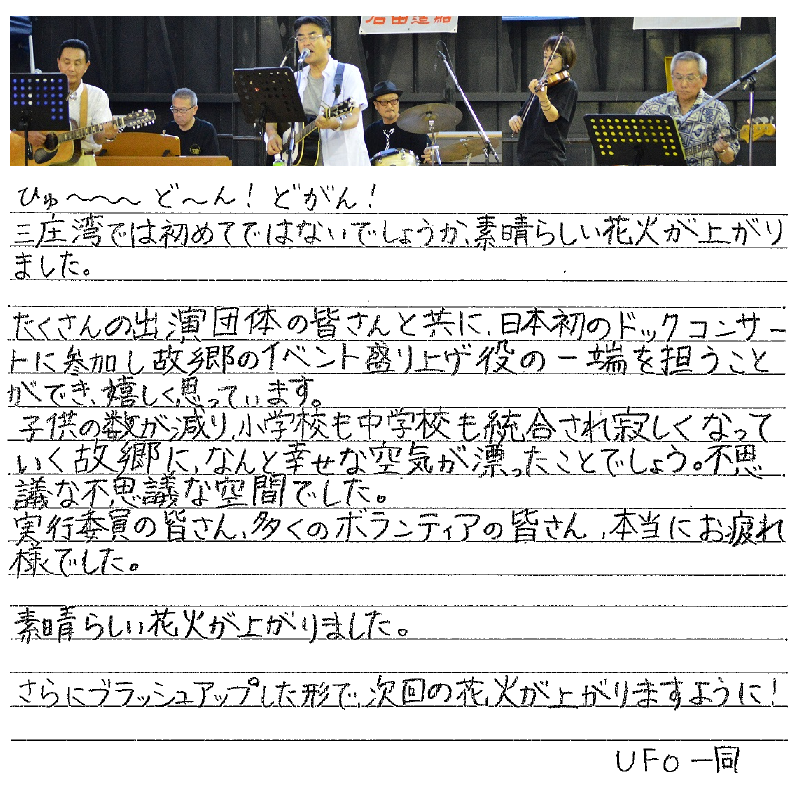 ひゅ〜〜〜 ど〜ん！ どがん！
三庄湾では初めてではないでしょうか、素晴らしい花火が上がり
ました。
たくさんの出演団体の皆さんと共に、日本初のドックコンサー
トに参加し故郷のイベント盛り上げ役の一端を担うこと
ができ、嬉しく思っています。
子供の数が減り、小学校も中学校も統合され寂しくなって
いく故郷に、なんと幸せな空気が漂ったことでしょう。不思
議な不思議な空間でした。
実行委員の皆さん、多くのボランティアの皆さん、本当にお疲れ
様でした。
素晴らしい花火が上がりました。
さらにブラッシュアップした形で、次回の花火が上がりますように！
UFO 一同